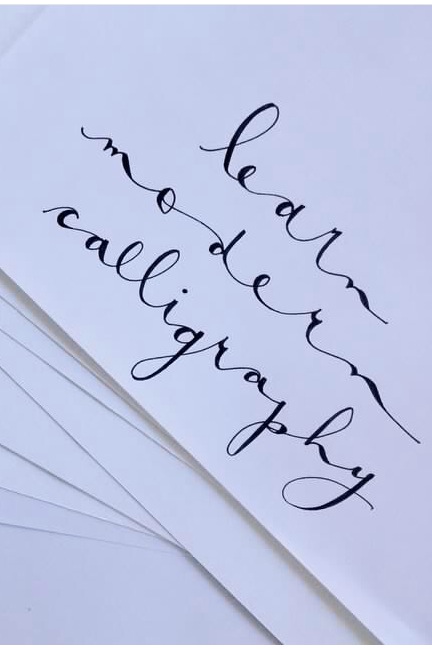 learn
modern
calligraphy